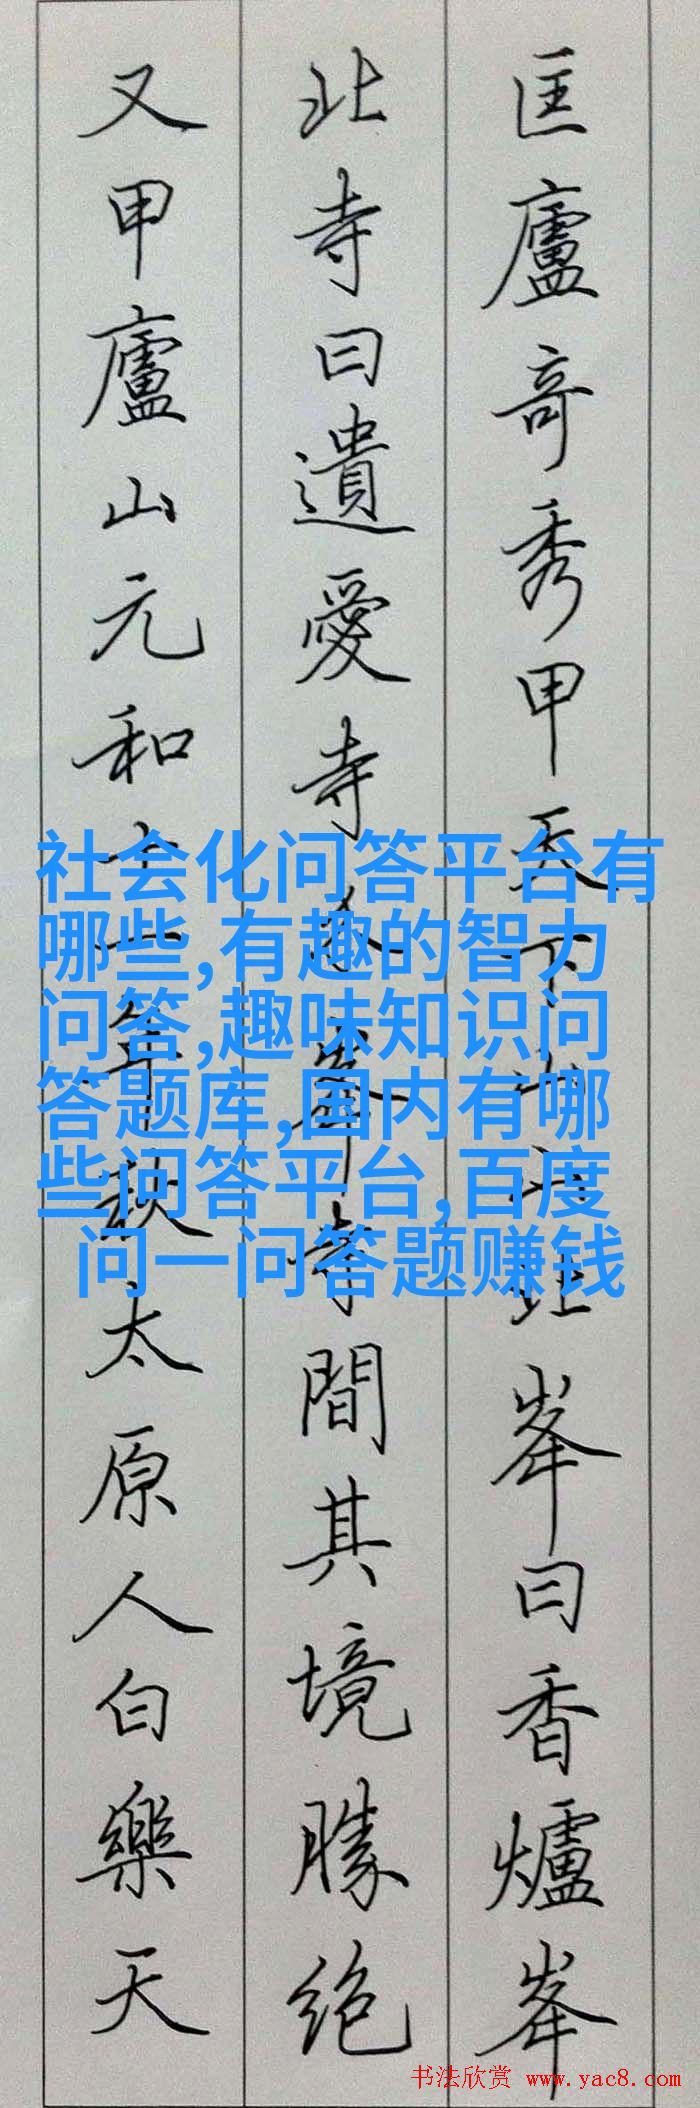 匡廬奇秀甲天下山山北峯曰香爐峯
北寺曰遺愛寺介峯寺間其境勝绝
又甲廬山元和十一年秋太原人白樂天
社会化问答平台有
哪些,有趣的智力
问答,趣味知识问
答题库,国内有哪
些问答平台,百度
问一问答题赚钱
书法欣赏 www.yac8.com